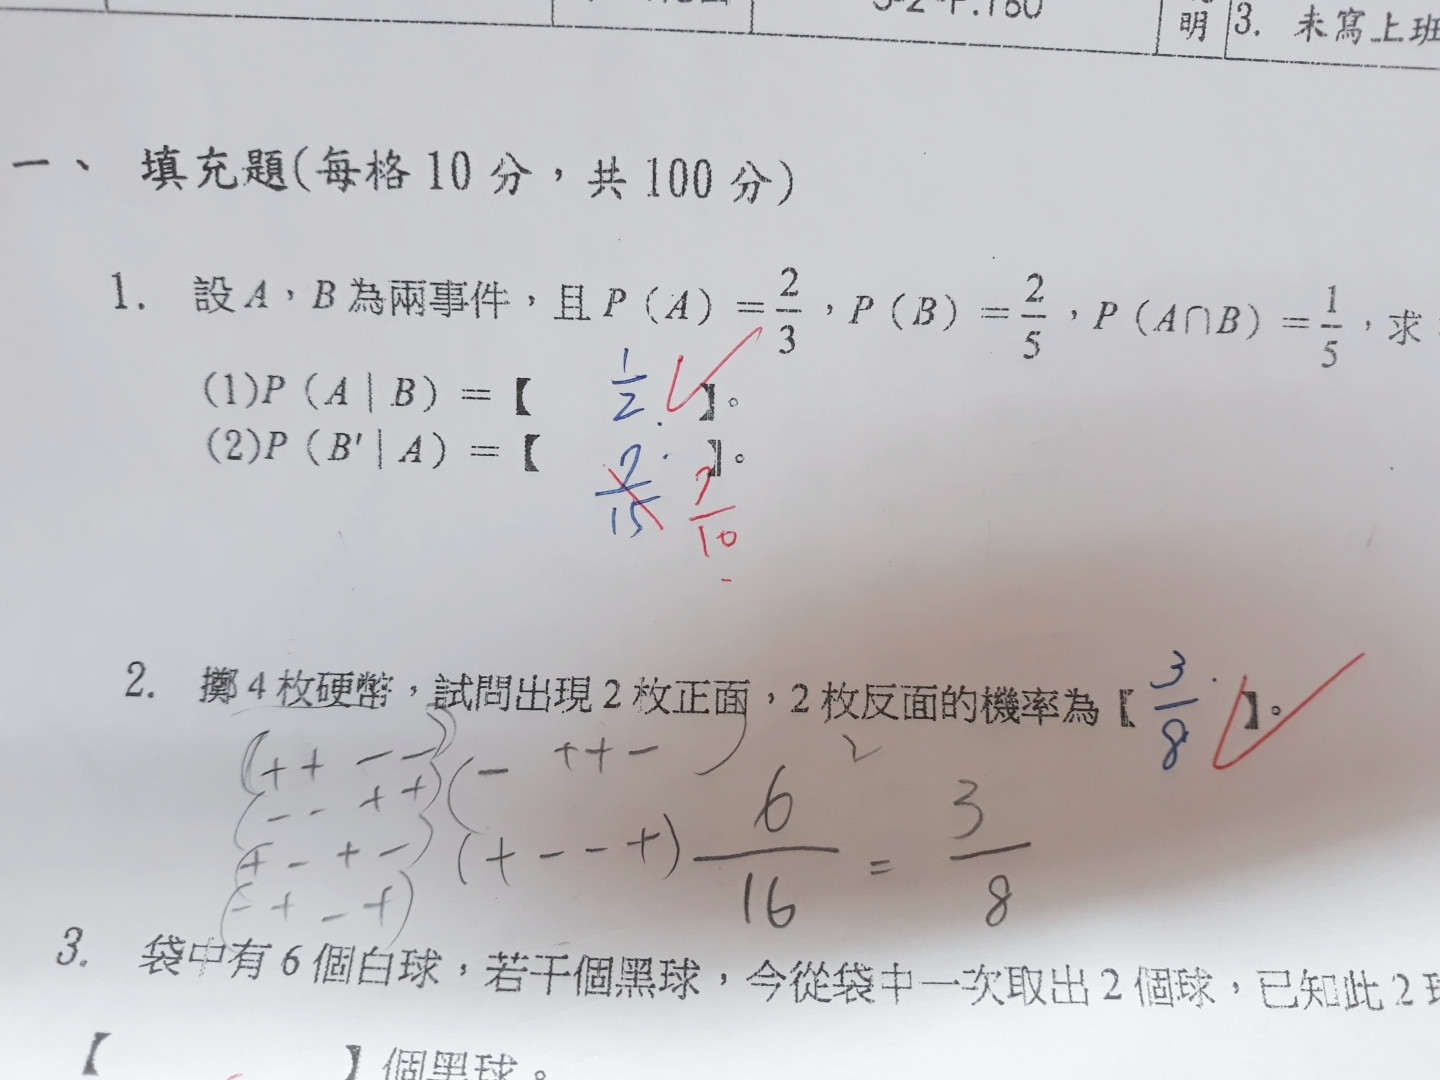 明 3. 未寫上班
一、 填充題(每格10分，共100分)
1. 設A，B為兩事件，且P(A)=2/3，P(B)=2/5，P(A∩B)=1/5，求
(1)P(A|B)=【 1/2 】。
(2)P(B'|A)=【 7/15 】。 7/10
2. 擲4枚硬幣，試問出現2枚正面，2枚反面的機率為【 3/8 】。
(++--) (-++-)
(--++)
(+-+-) (+--+) 6/16 = 3/8
(-+-+)
3. 袋中有6個白球，若干個黑球，今從袋中一次取出2個球，已知此2球
【 】個黑球。